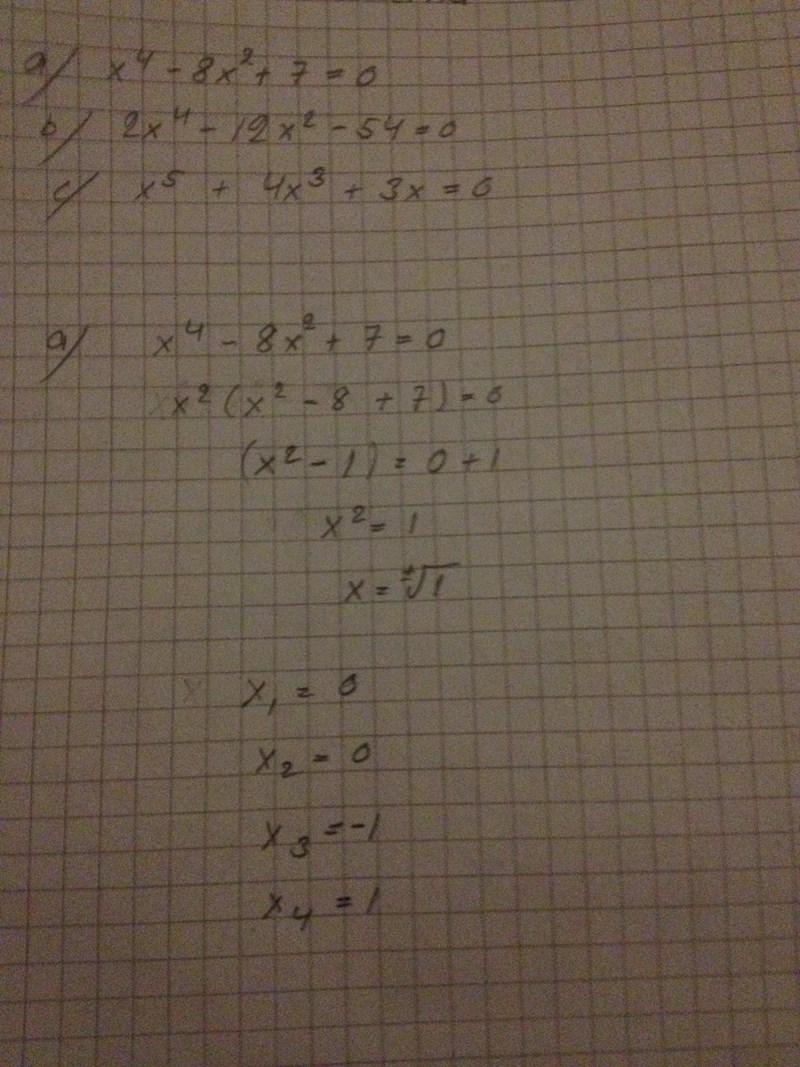 a) x⁴ - 8x² + 7 = 0
b) 2x⁴ - 12x² - 54 = 0
c) x⁵ + 4x³ + 3x = 0
a) x⁴ - 8x² + 7 = 0
x² (x² - 8 + 7) = 0
(x² - 1) = 0 + 1
x² = 1
x = ±√1
x₁ = 0
x₂ = 0
x₃ = -1
x₄ = 1